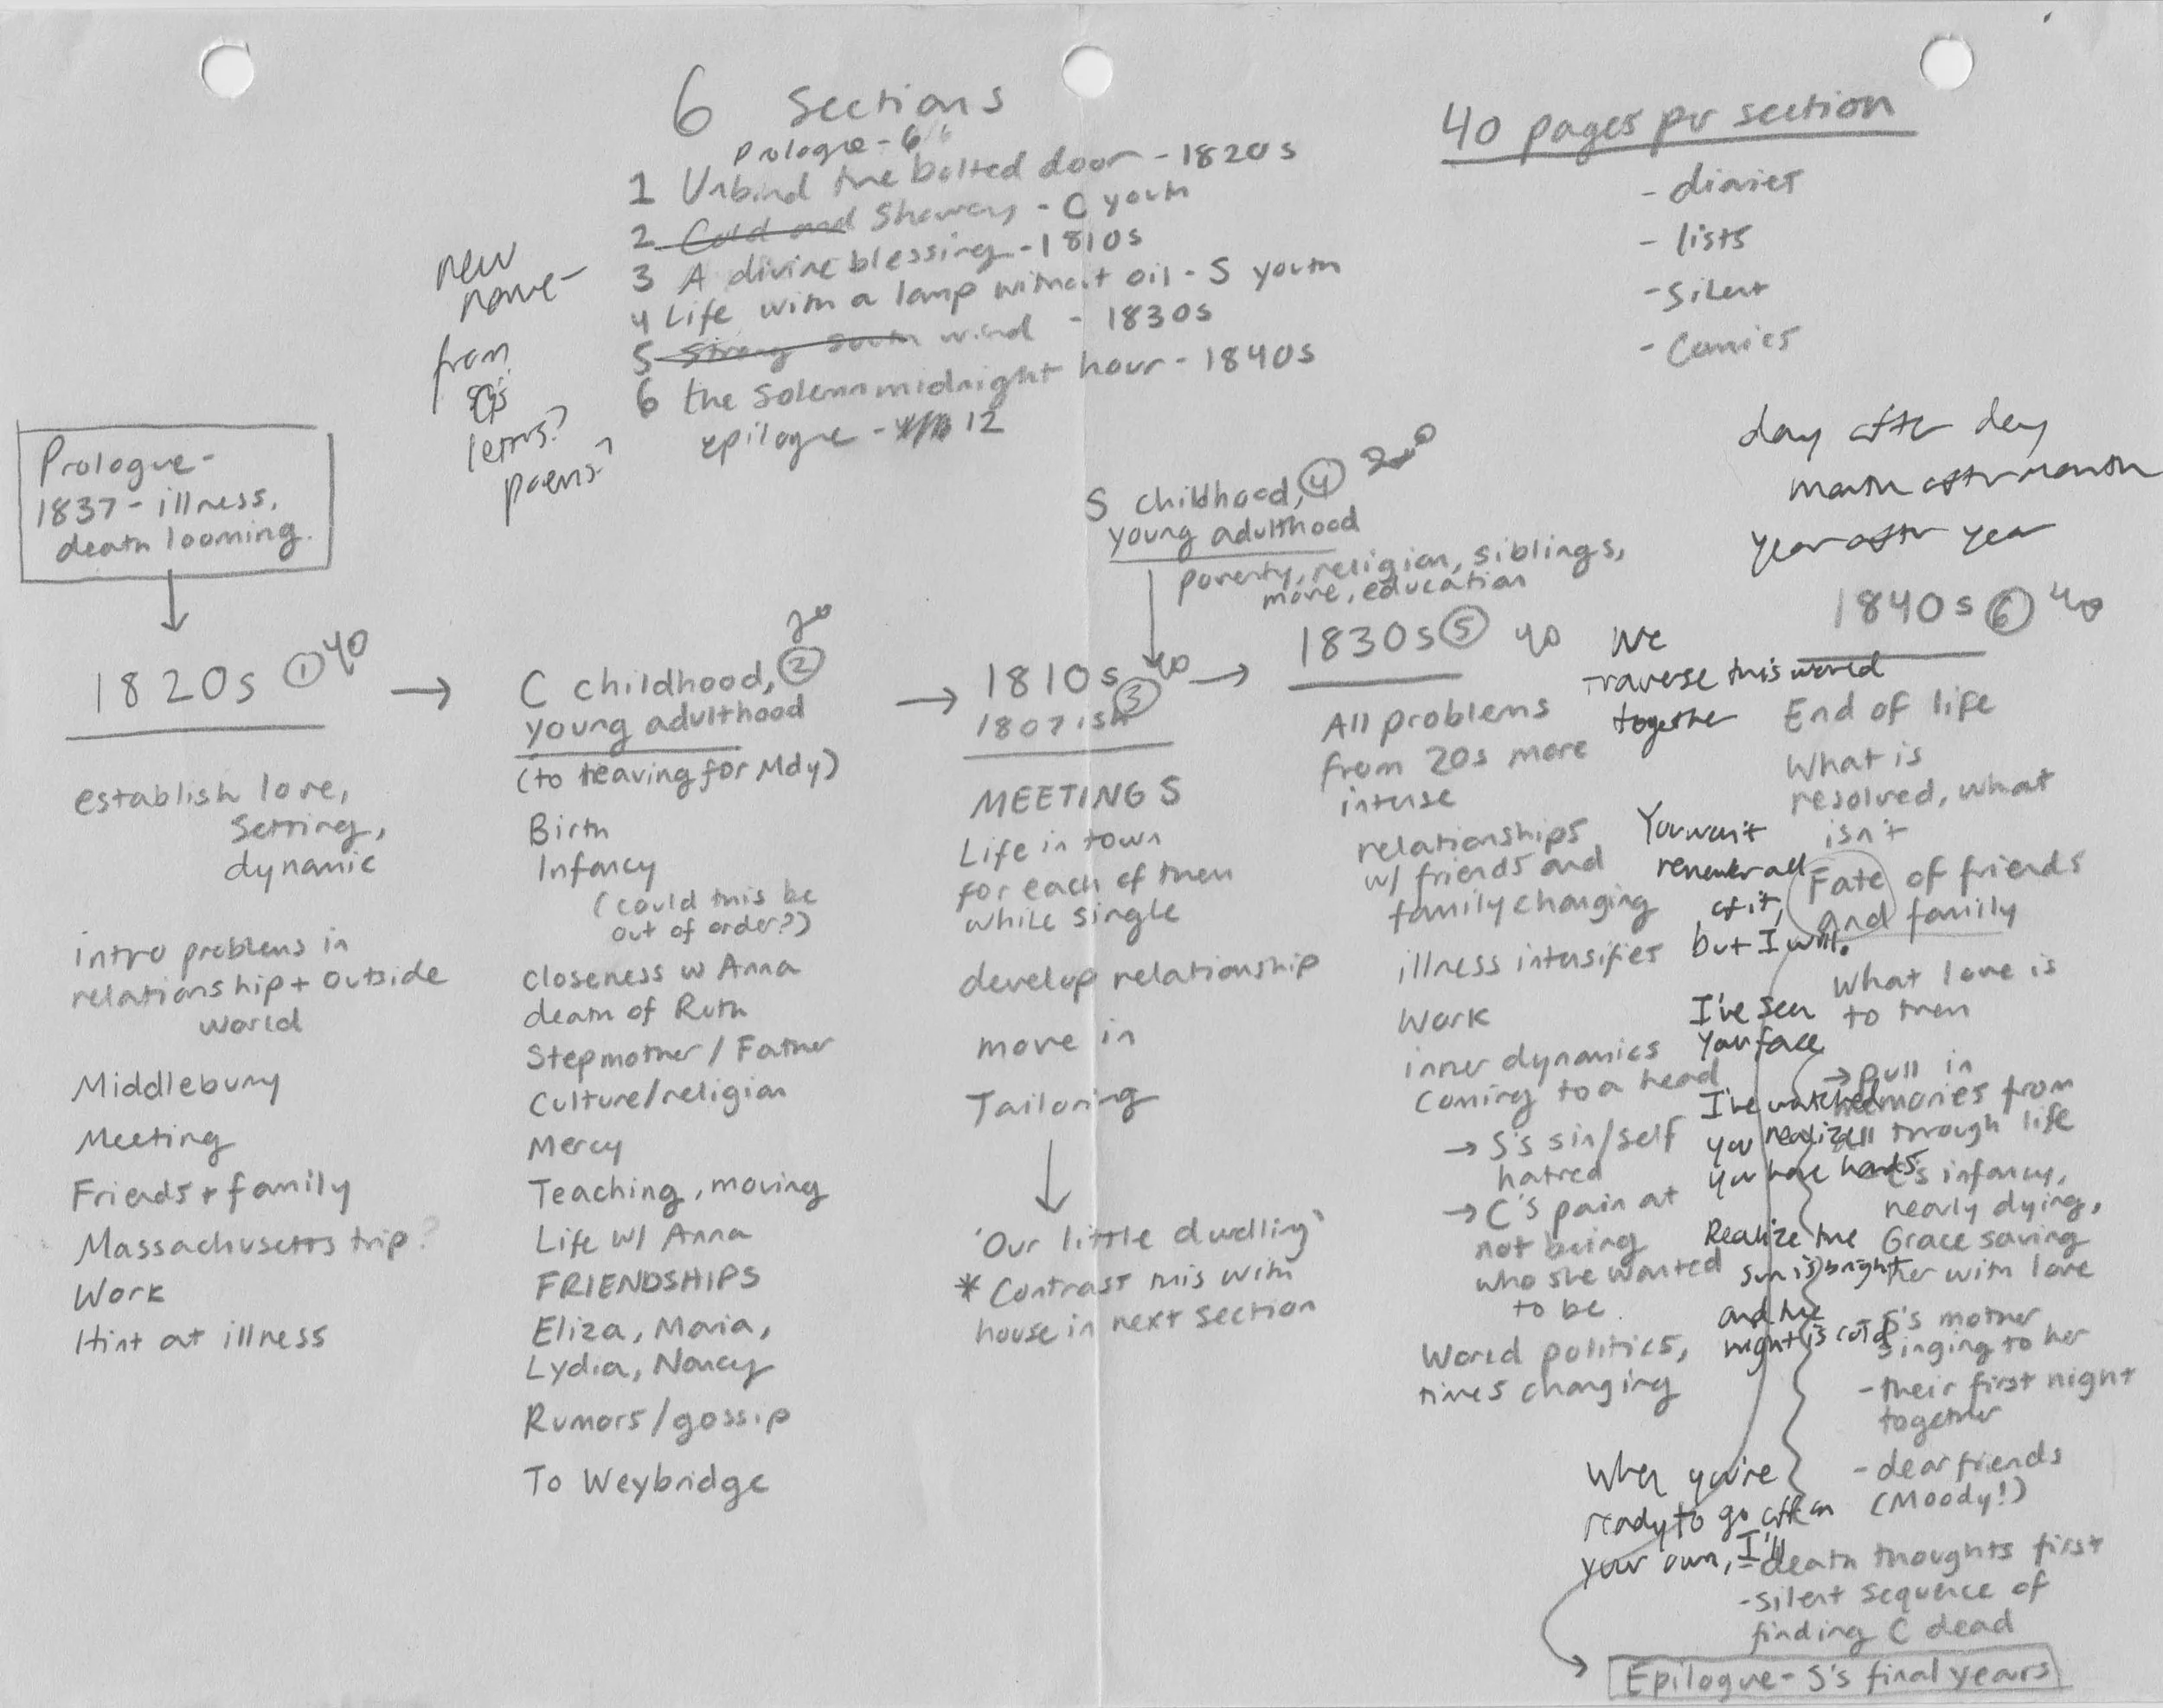 6 Sections
Prologue - 6
1 Unbind the bolted door - 1820s
2 Cold and Showery - C youth
3 A divine blessing - 1810s
4 Life with a lamp without oil - S youth
5 Strong South wind - 1830s
6 the solemn midnight hour - 1840s
epilogue - 12
new
name -
from
letters?
poems?
40 pages per section
- diaries
- lists
- Silent
- Comics
day after day
month after month
year after year
Prologue -
1837 - illness,
death looming.
1820s ① 40
establish love,
setting,
dynamic
intro problems in
relationship + outside
world
Middlebury
Meeting
Friends + family
Massachusetts trip?
Work
Hint at illness
20
C childhood, ②
young adulthood
(to leaving for Mdy)
Birth
Infancy
(could this be
out of order?)
closeness w Anna
death of Ruth
Stepmother / Father
Culture/religion
Mercy
Teaching, moving
Life w/ Anna
FRIENDSHIPS
Eliza, Maria,
Lydia, Nancy
Rumors/gossip
To Weybridge
1810s ③ 40
1807ish
MEETING S
Life in town
for each of them
while single
develop relationship
move in
Tailoring
'Our little dwelling'
* Contrast this with
house in next section
S childhood, ④ 20
young adulthood
poverty, religion, siblings,
move, education
1830s ⑤ 40
All problems
from 20s more
intense
relationships
w/ friends and
family changing
illness intensifies
Work
inner dynamics
coming to a head
→ S's sin/self
hatred
→ C's pain at
not being
who she wanted
to be.
World politics,
times changing
We
traverse this world
together
You won't
remember all
of it,
but I will.
I've seen
your face
I've watched
you realize
you have hands
Realize the
sun is bright
and the
night is cold
When you're
ready to go off on
your own, I'll
1840s ⑥ 40
End of life
What is
resolved, what
isn't
Fate of friends
and family
What love is
to them
→ pull in
memories from
all through life
C's infancy,
nearly dying,
Grace saving
her with love
- S's mother
singing to her
- their first night
together
- dear friends
(Moody!)
- death thoughts first
- silent sequence of
finding C dead
Epilogue - S's final years